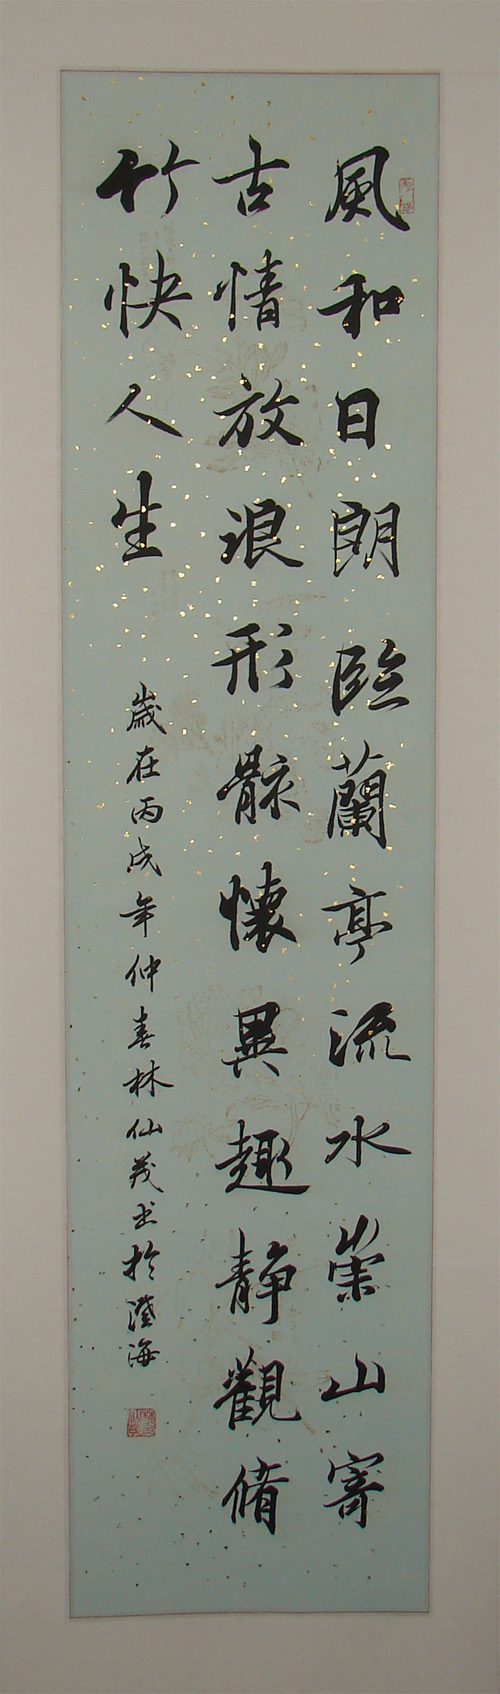 風和日朗臨蘭亭流水崇山寄
古情放浪形骸懷異趣静觀脩
竹快人生
歲在丙戌年仲春林仙茂书於澄海